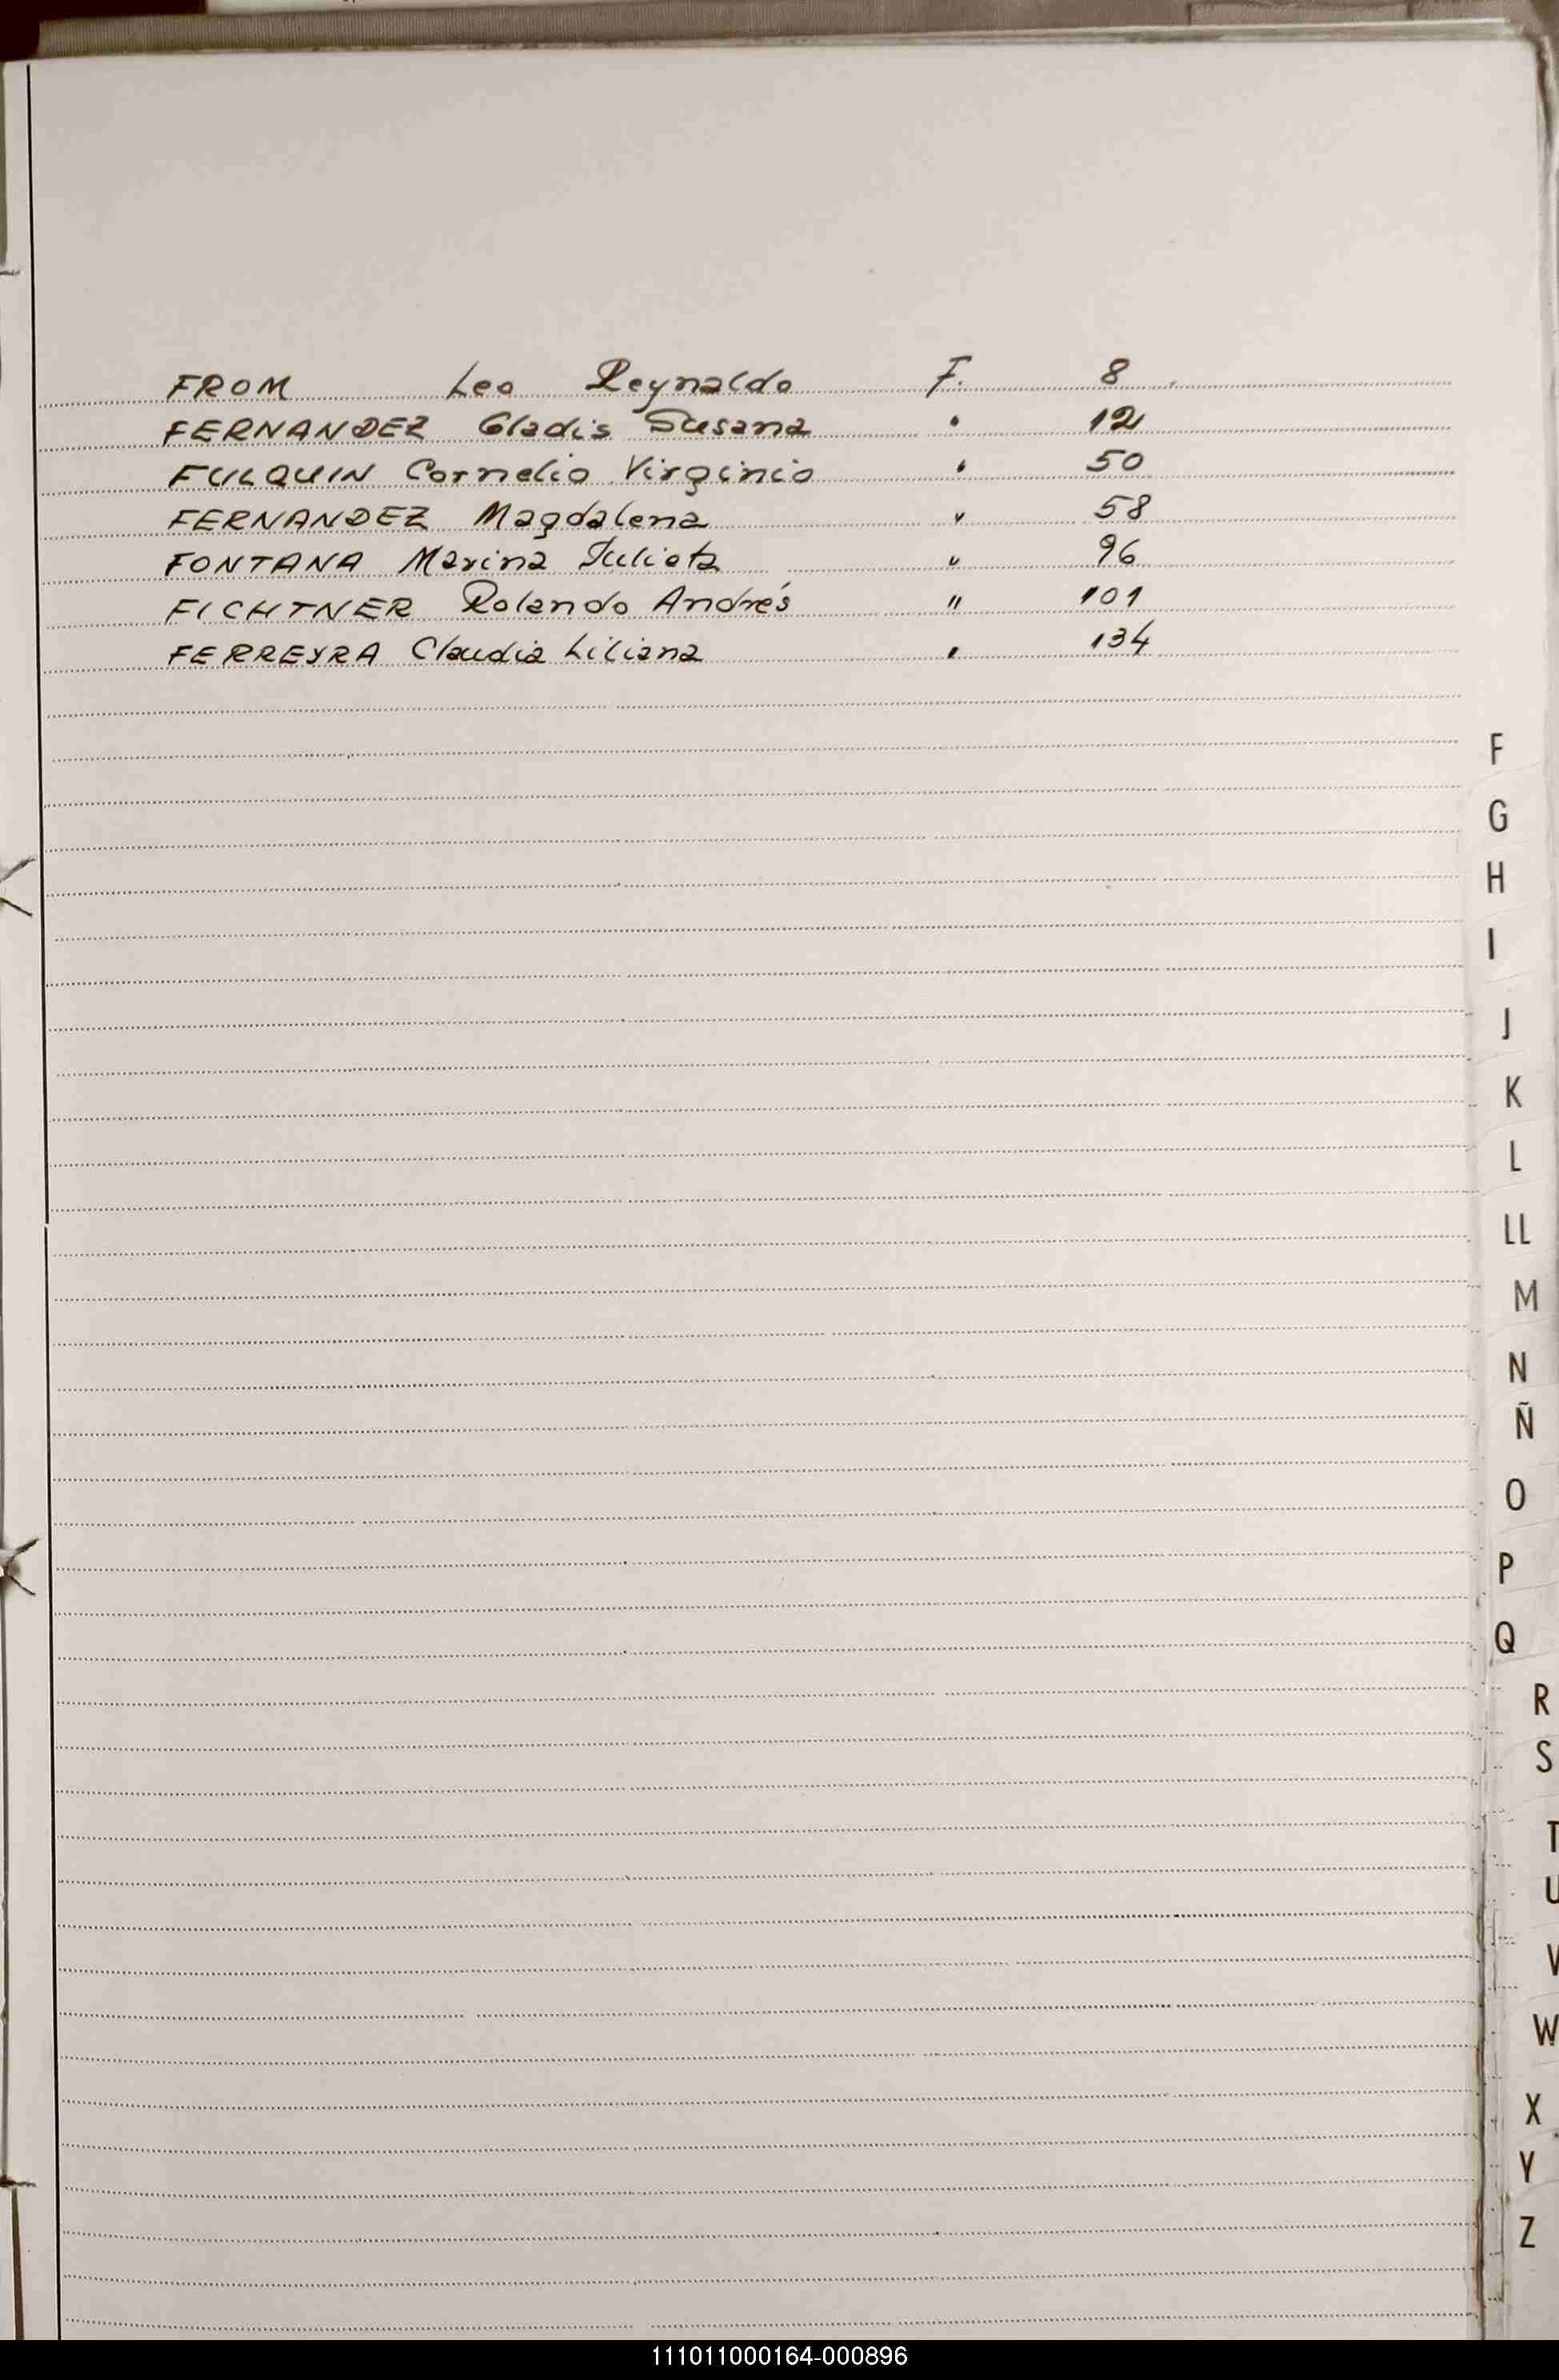 FROM Leo Reynaldo F. 8
FERNANDEZ Gladis Susana " 12
FULQUIN Cornelio Virginio " 50
FERNANDEZ Magdalena " 58
FONTANA Marina Julieta " 96
FICHTNER Rolando Andrés " 101
FERREYRA Claudia Liliana " 134
F
G
H
I
J
K
L
LL
M
N
Ñ
O
P
Q
R
S
T
U
V
W
X
Y
Z
111011000164-000896